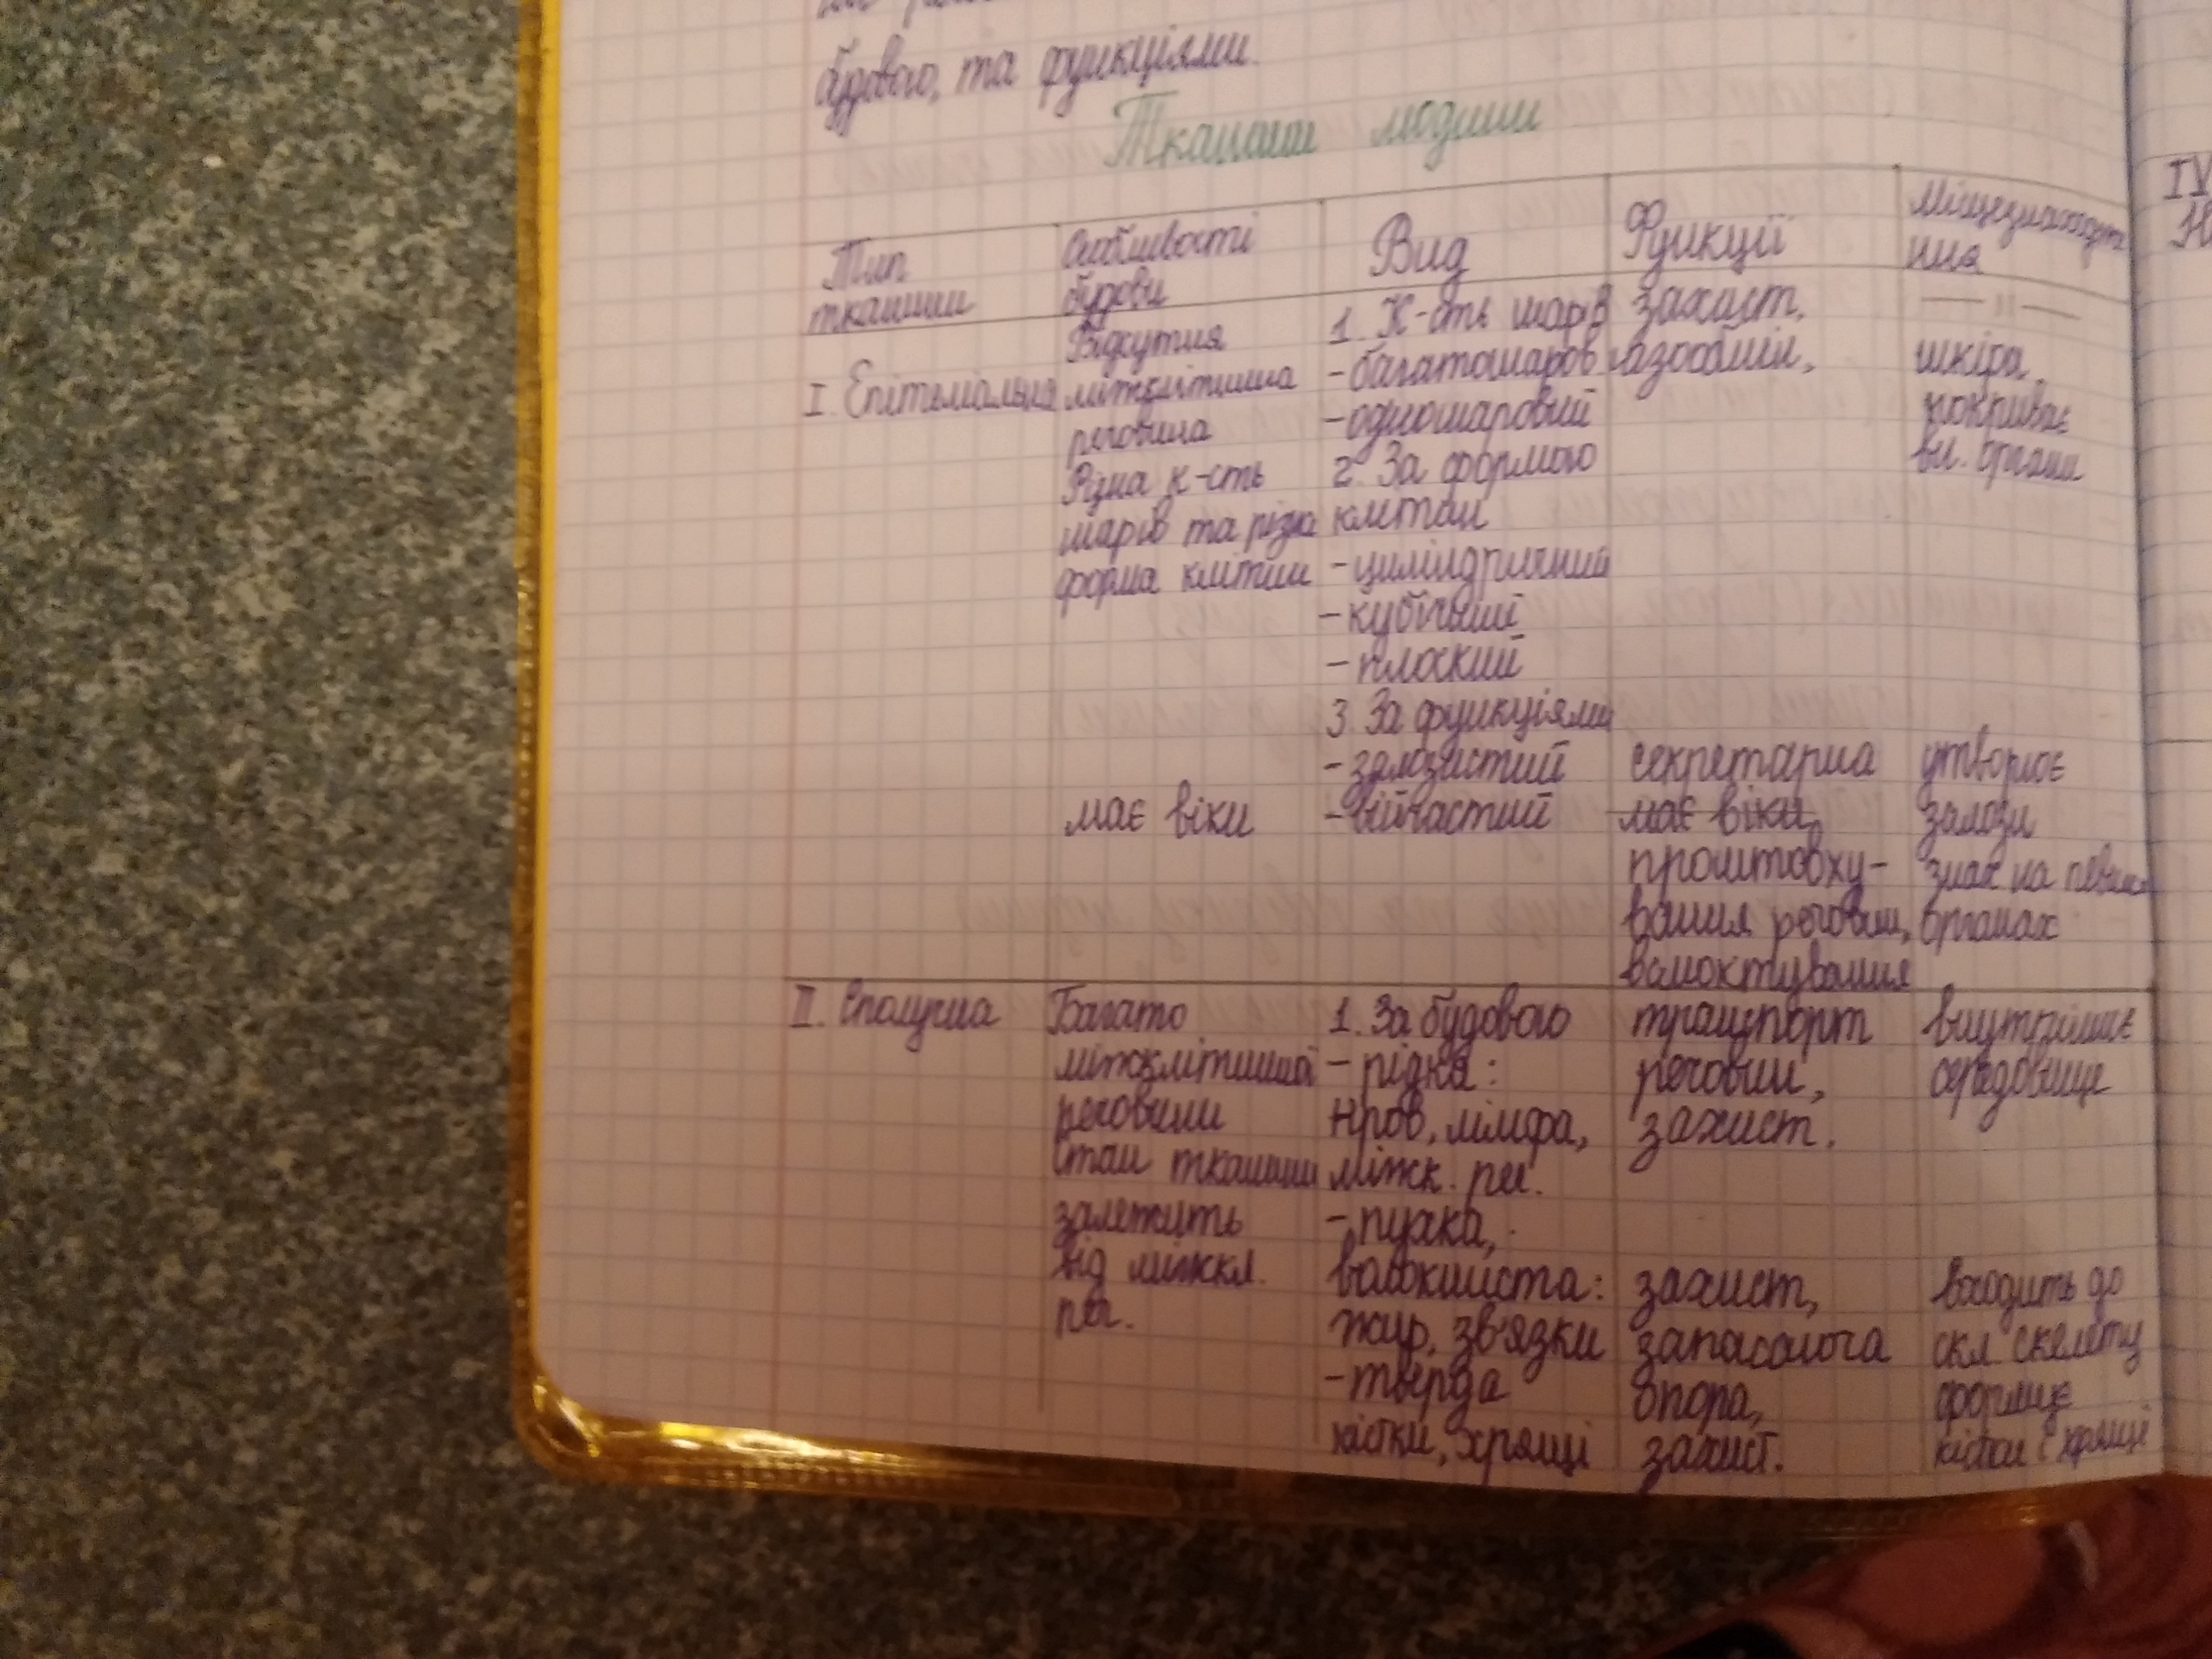 будовою, та функціями.
Тканини людини
Тип
тканини
Особливості
будови
Вид
Функції
Місцезнаходжен
ння
I. Епітеліальна
Відсутня
міжклітинна
речовина
Різна к-сть
шарів та різна
форма клітин
має віки
1. К-сть шарів
- багатошаров
- одношаровий
2. За формою
клітин
- циліндричний
- кубічний
- плоский
3. За функціями
- залозистий
- війчастий
захист,
газообмін,
секреторна
має віки,
проштовху-
вання речовин,
всмоктування
— " —
шкіра,
покриває
вн. органи
утворює
залози
знах на певних
органах
II. Сполучна
Багато
міжклітинної
речовини
Стан тканини
залежить
від міжкл.
реч.
1. За будовою
- рідка:
кров, лімфа,
міжк. реч.
- пухка,
волокниста:
жир, зв'язки
- тверда
кістки, хрящі
транспорт
речовин,
захист.
захист,
запасаюча
опора,
захист.
внутрішнє
середовище
входить до
скл. скелету
формує
кістки і хрящі
IV